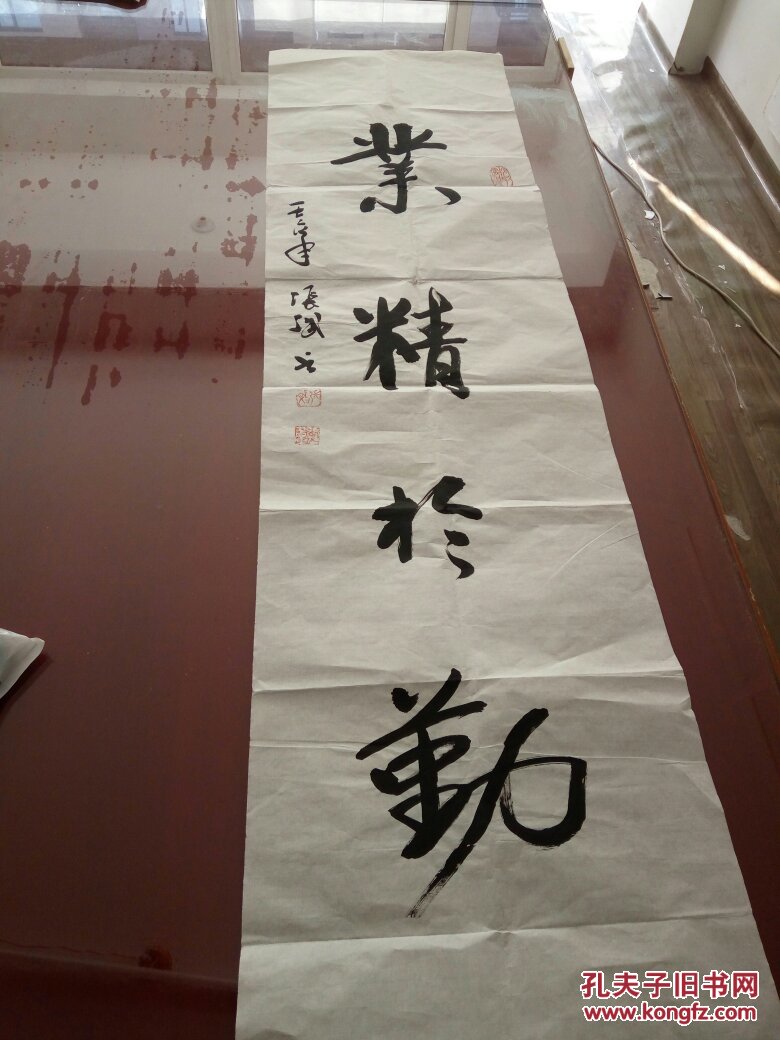 業精於勤
張斌书
孔夫子旧书网
www.kongfz.com